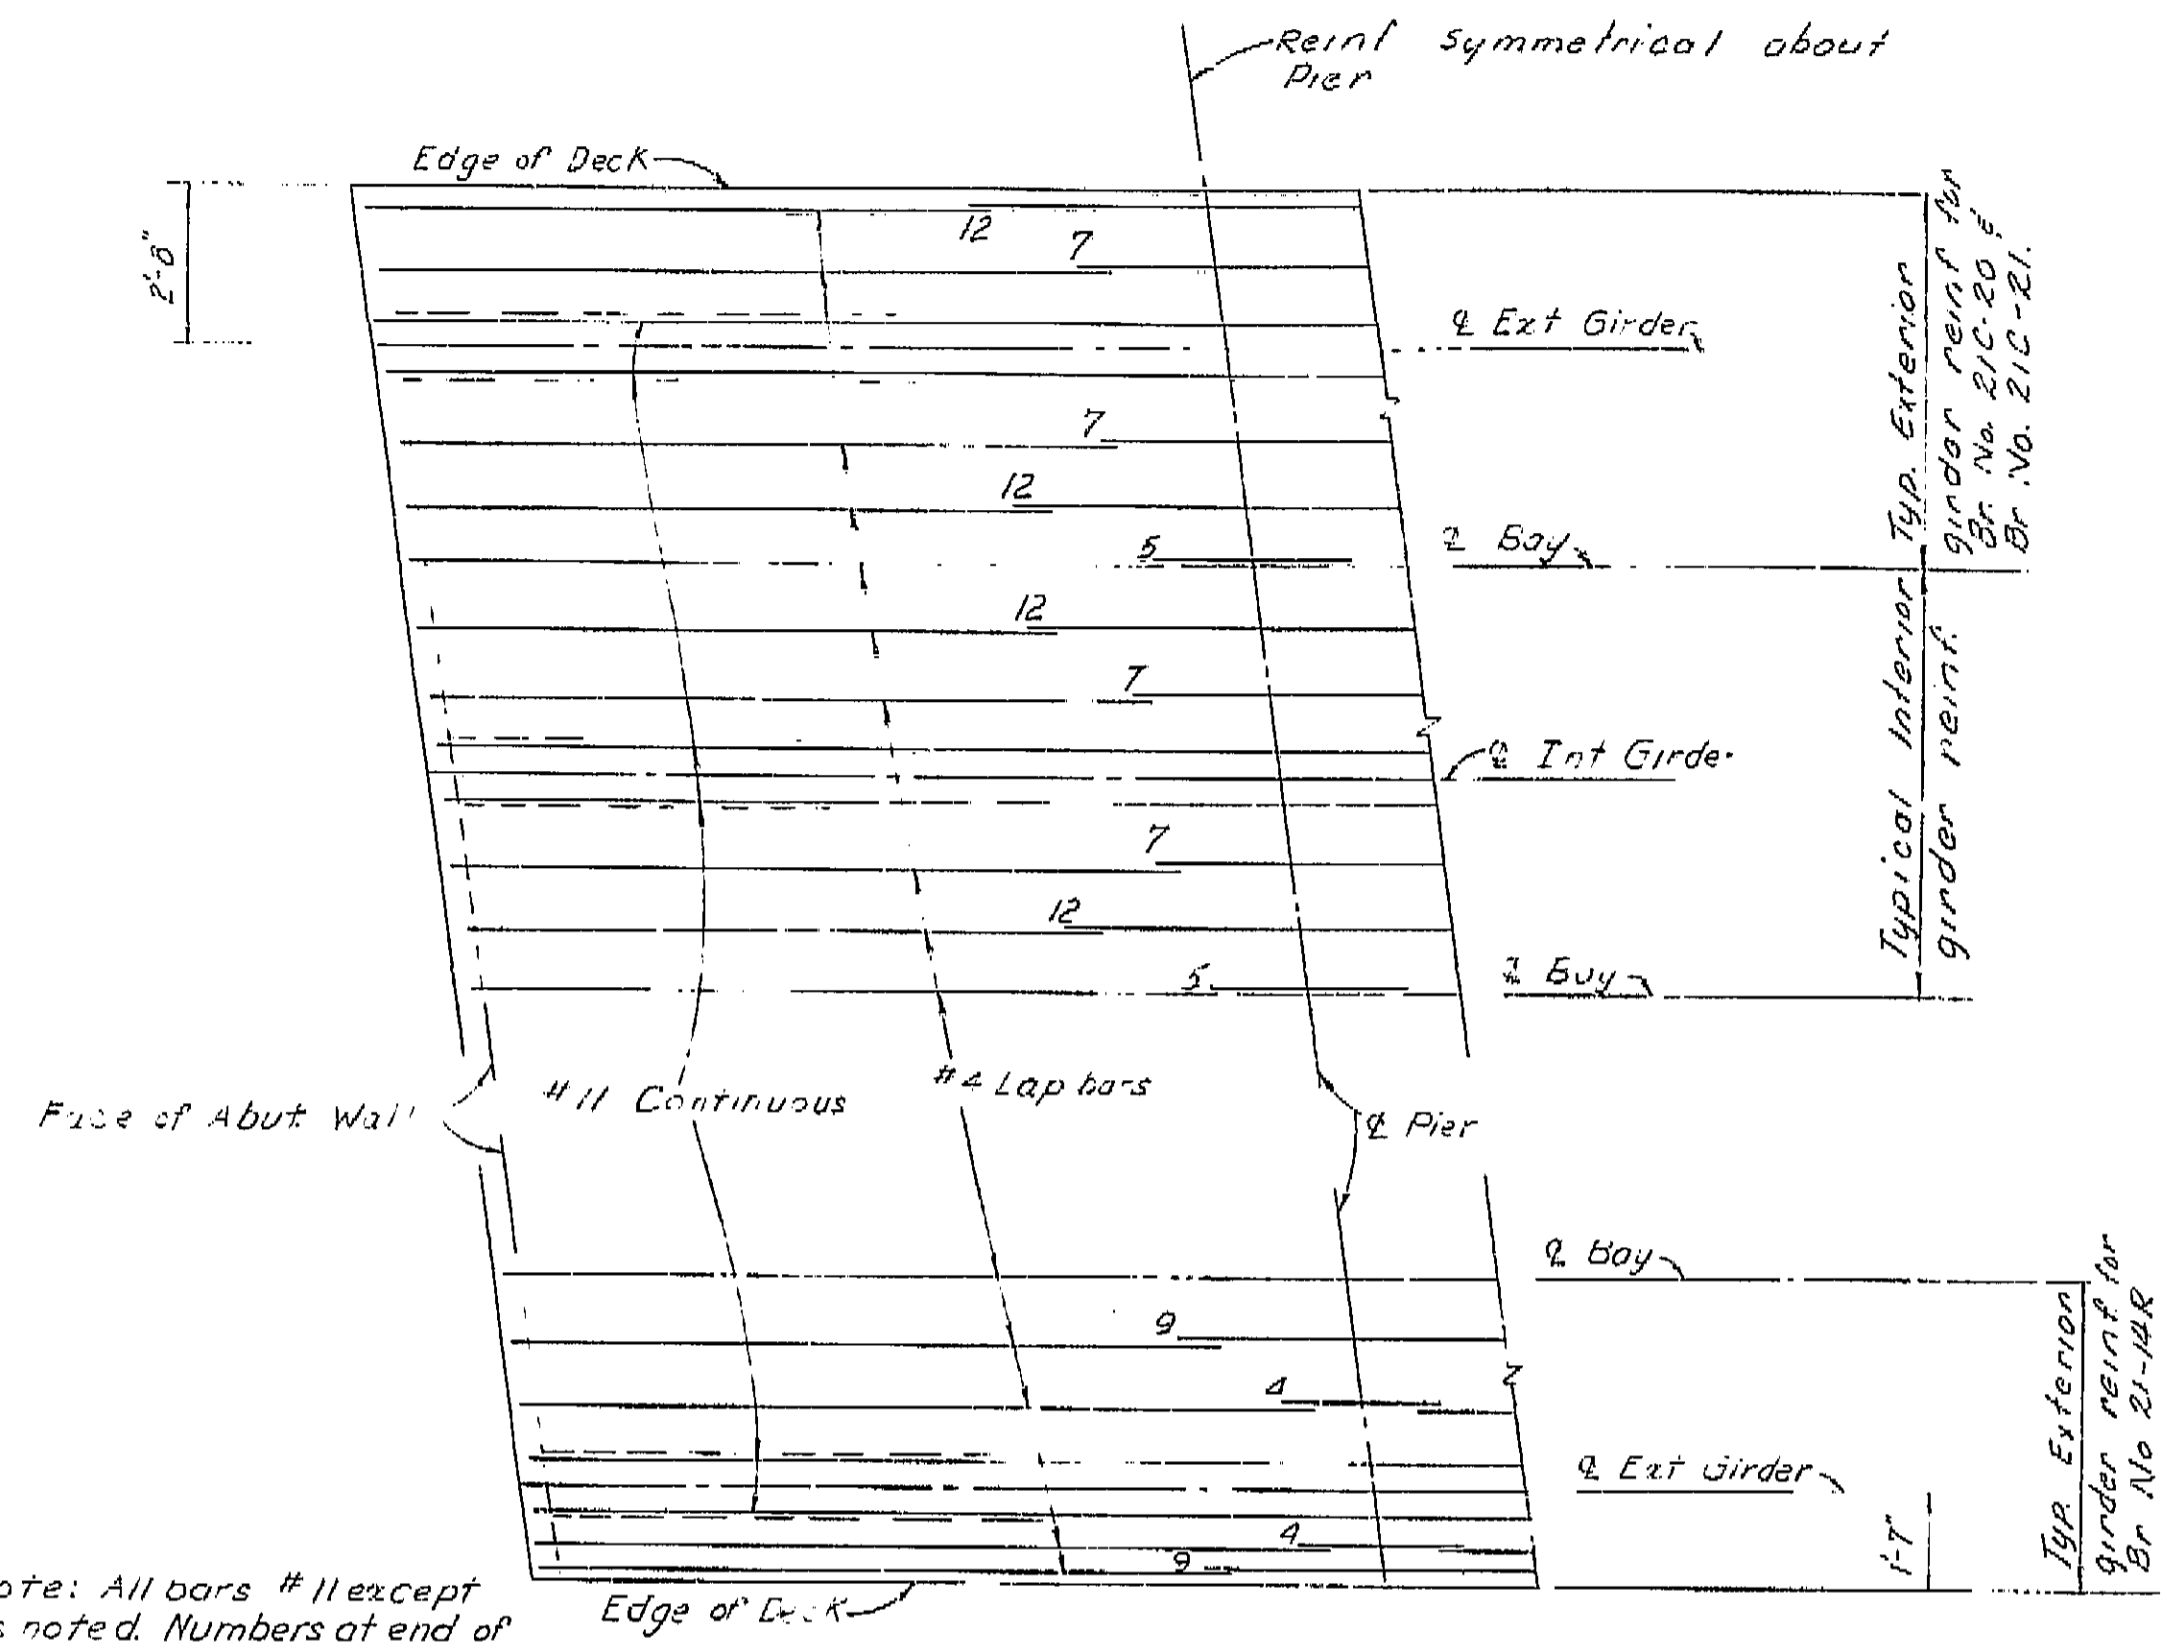 Reinf Symmetrical about
Pier
Edge of Deck
2'-8"
12
7
℄ Ext Girder
7
12
5
℄ Bay
12
7
℄ Int Girde
7
12
5
℄ Bay
Typ. Exterior
girder reinf for
Br. No. 21C-20 &
Br. No. 21C-21.
Typical Interior
girder reinf.
Face of Abut. Wall
#11 Continuous
#4 Lap bars
℄ Pier
℄ Bay
9
4
℄ Ext Girder
4
9
1'-7"
Typ. Exterior
girder reinf. for
Br No 21-14R
Edge of Deck
ote: All bars #11 except
s noted. Numbers at end of